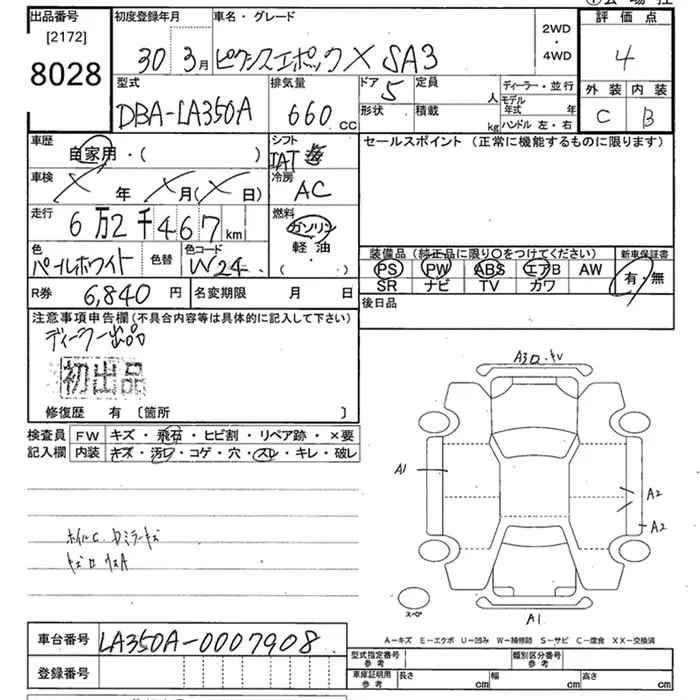 ①会場控
出品番号 初度登録年月 車名・グレード 評価点
[2172] 2WD
8028 30 3月 ピクシスエポック X SA3 ・ 4
4WD
型式 排気量 ドア 5 定員 人 ディーラー・並行 外装 内装
モデル年式 年
DBA-LA350A 660 cc 形状 積載 kg ハンドル 左・右 C B
車歴 自家用・( ) シフト IAT セールスポイント (正常に機能するものに限ります)
車検 X 年 X 月(X 日) 冷房 AC
走行 6万2千467 km 燃料 ガソリン
軽油
・( )
色 パールホワイト 色替 色コード W24 装備品(純正品に限り○をつけてください) 新車保証書
PS PW ABS エアB AW 有・無
SR ナビ TV カワ
R券 6,840円 名変期限 月 日 後日品
注意事項申告欄(不具合内容等は具体的に記入して下さい)
ディーラー出品
初出品
修復歴 有 〔箇所 〕
検査員 FW キズ・飛石・ヒビ割・リペア跡・×要
記入欄 内装 キズ・汚レ・コゲ・穴・スレ・キレ・破レ
A1
A2
A2
スペア
A1
A-キズ E-エクボ U-凹み W-補修跡 S-サビ C-腐食 XX-交換済
車台番号 LA350A-0007908
型式指定番号 参考 類別区分番号 参考
登録番号 車庫証明用 参考 長さ cm 幅 cm 高さ cm